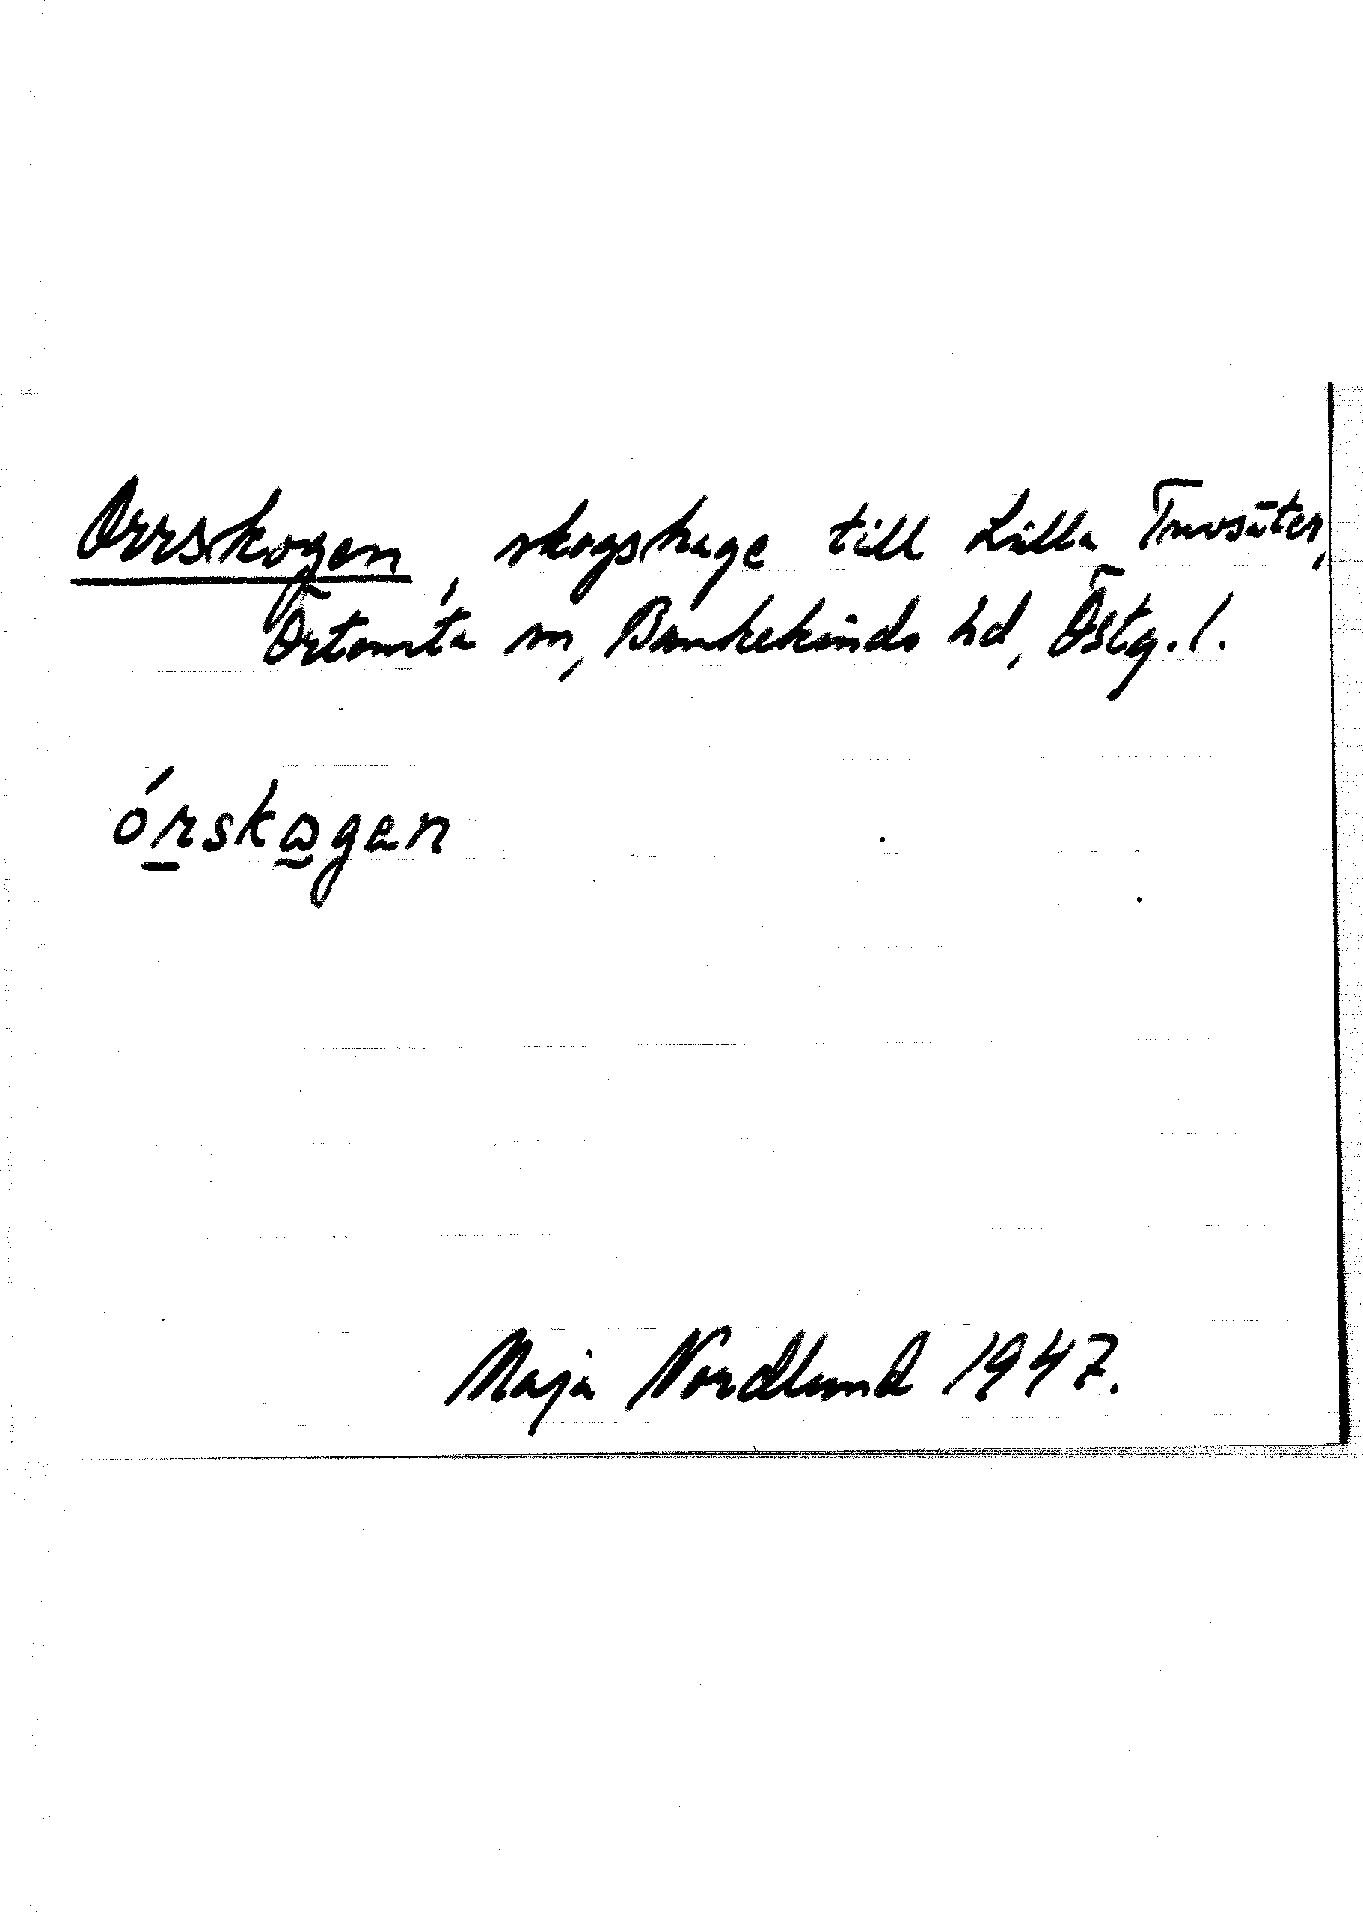 Orrskogen, skogshage till Lilla Tuvsäter,
Örtomta sn, Bankekinds hd, Östg. l.
órskogen
Maja Nordlund 1947.